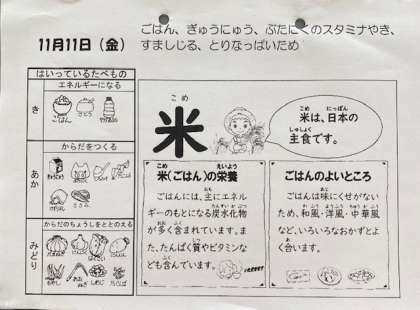 11月11日（金）
ごはん、ぎゅうにゅう、ぶたにくのスタミナやき、
すましじる、とりなっぱいため
はいっているたべもの
エネルギーになる
き
ごはん
さとう
からだをつくる
あか
ささみ
からだのちょうしをととのえる
みどり
たまねぎ
しめじ
こめ
米
米は、日本の
主食です。
米(ごはん)の栄養
ごはんには、主にエネル
ギーのもとになる炭水化物
が多く含まれています。ま
た、たんぱく質やビタミンな
ども含んでいます。
ごはんのよいところ
ごはんは味にくせがない
ため、和風・洋風・中華風
など、いろいろなおかずとよ
く合います。